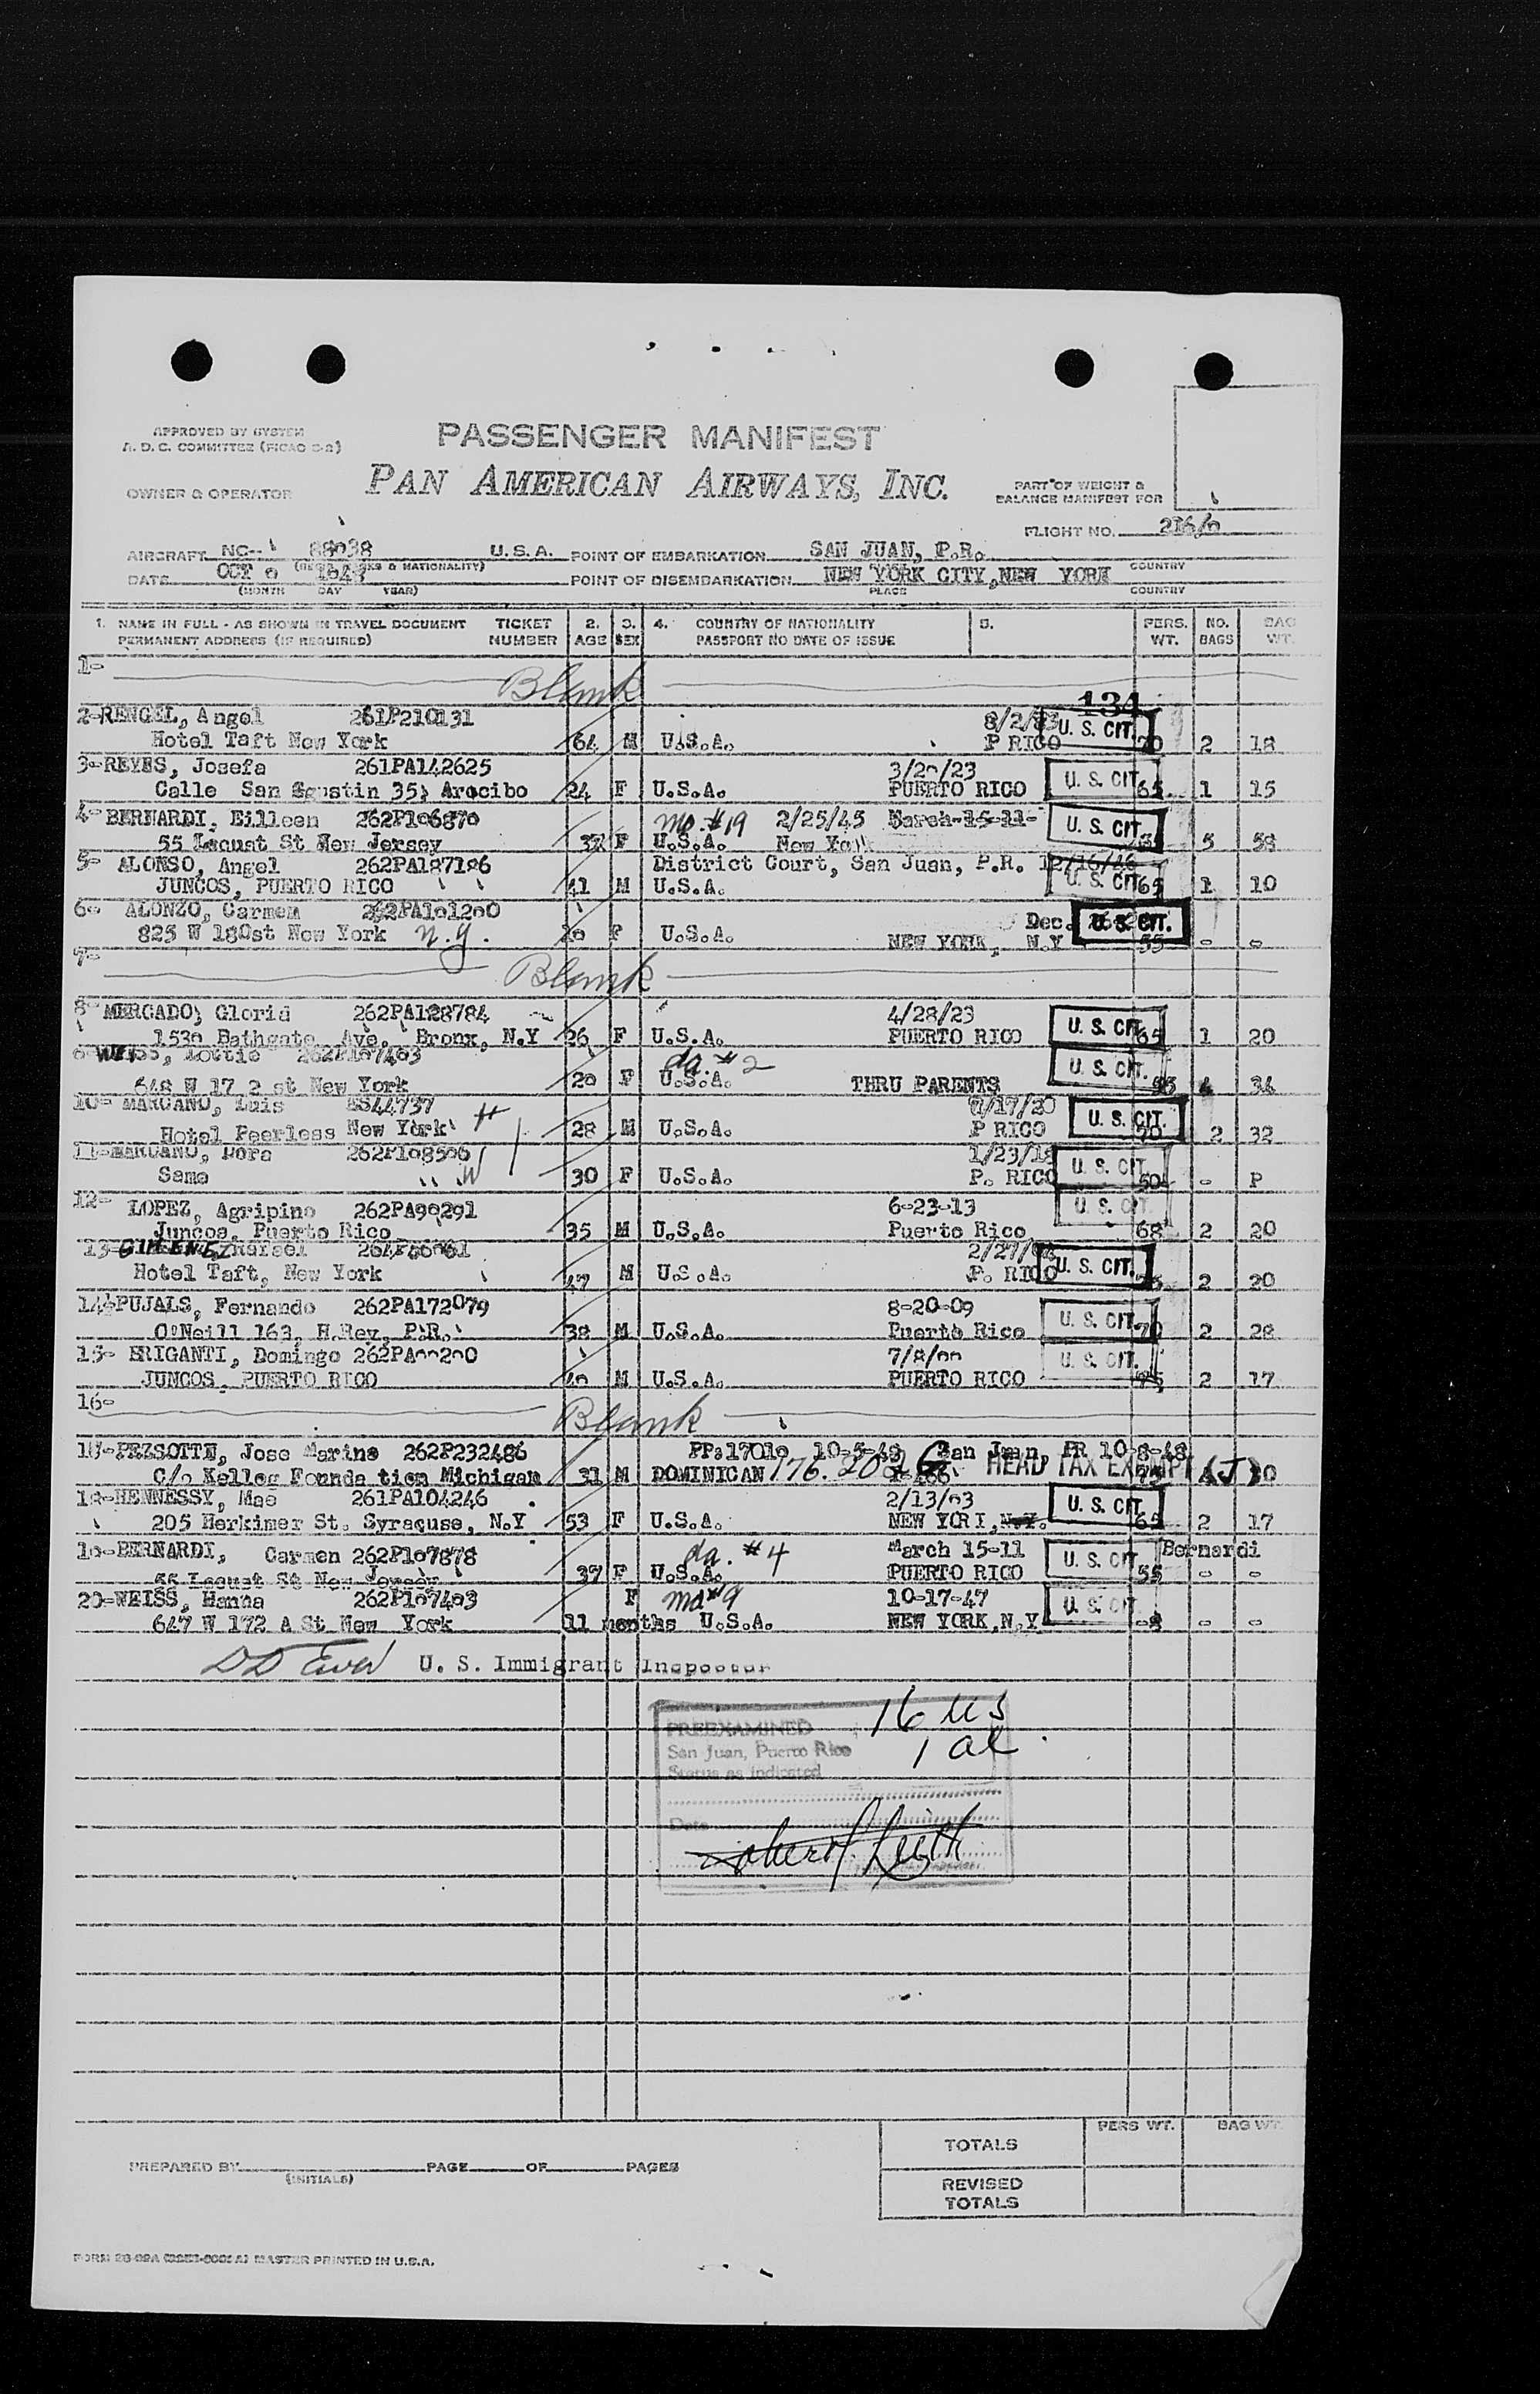 APPROVED BY SYSTEM
A. D. C. COMMITTEE (PICAO 2-2)
PASSENGER MANIFEST
OWNER & OPERATOR
PAN AMERICAN AIRWAYS, INC.
PART OF WEIGHT &
BALANCE MANIFEST FOR
FLIGHT NO.
AIRCRAFT NC-- 88038 U.S.A. POINT OF EMBARKATION SAN JUAN, P.R.
(REG. MARKS & NATIONALITY) COUNTRY
DATE OCT POINT OF DISEMBARKATION NEW YORK CITY,NEW YORK
(MONTH DAY YEAR) PLACE COUNTRY
1. NAME IN FULL - AS SHOWN IN TRAVEL DOCUMENT TICKET 2. 3. 4. COUNTRY OF NATIONALITY 5. PERS. NO. BAG
PERMANENT ADDRESS (IF REQUIRED) NUMBER AGE SEX PASSPORT NO DATE OF ISSUE WT. BAGS WT.
1- Blank
134
2-RENGEL, Angel 261P210131 U. S. CIT.
Hotel Taft New York 64 M U.S.A. P RICO 70 2 18
3-REYES, Josefa 261PA142625 3/20/23 U. S. CIT.
Calle San Agustin 35, Arecibo 24 F U.S.A. PUERTO RICO 65 1 15
4-BERNARDI, Eilleen 262P106870 mo. #19 2/25/45 March-15-11- U. S. CIT.
55 Lacust St New Jersey F U.S.A. New York 5 58
5- ALONSO, Angel 262PA187186 District Court, San Juan, P.R. 12/16/46
JUNCOS, PUERTO RICO 41 M U.S.A. U. S. CIT. 65 1 10
6- ALONZO, Carmen 262PA101200 Dec. U. S. CIT.
825 W 180st New York n.y. F U.S.A. NEW YORK, N.Y 55 - -
7- Blank
8- MERCADO, Gloria 262PA128784 4/28/23
1530 Bathgate Ave. Bronx, N.Y 26 F U.S.A. PUERTO RICO U. S. CIT. 65 1 20
WEISS, Lottie 262P107403 da. #2 U. S. CIT.
648 W 17 2 st New York 20 F U.S.A. THRU PARENTS 4 34
10- MARCANO, Luis 8844737 /17/20 U. S. CIT.
Hotel Peerless New York 28 M U.S.A. P RICO 70 2 32
11-MARCANO, Dora 262P108506 1/23/18 U. S. CIT.
Same 30 F U.S.A. P. RICO 50 - P
12- LOPEZ, Agripino 262PA90291 6-23-13 U. S. CIT.
Juncos, Puerto Rico 35 M U.S.A. Puerto Rico 68 2 20
13-GIMENEZ, Rafael 2/27/
Hotel Taft, New York 47 M U.S.A. P. RICO U. S. CIT. 2 20
14-PUJALS, Fernando 262PA172079 8-20-09 U. S. CIT.
O'Neill 163, H.Rey, P.R. 38 M U.S.A. Puerto Rico 70 2 28
15- BRIGANTI, Domingo U. S. CIT.
JUNCOS, PUERTO RICO M U.S.A. PUERTO RICO 75 2 17
16- Blank
Jose Marino 262P232486 San Juan, PR 10-8-48
C/o Kellog Founda tion Michigan 31 M DOMINICAN HEAD TAX EXEMPT (J)
HENNESSY, Mae 261PA104246 2/13/03 U. S. CIT.
205 Herkimer St. Syracuse, N.Y 53 F U.S.A. NEW YORK, N.Y. 65 2 17
19-BERNARDI, Carmen 262P107878 da. #4 March 15-11 U. S. CIT. Bernardi
55 Lacust St New Jersey 37 F U.S.A. PUERTO RICO 55 - -
20-WEISS, Hanna 262P107403 F 10-17-47
647 W 172 A St New York 11 months U.S.A. NEW YORK,N.Y U. S. CIT. - -
U. S. Immigrant Inspector
PREEXAMINED 16 US
San Juan, Puerto Rico 1 al
Status as indicated
Date
TOTALS PERS WT. BAG WT.
PREPARED BY PAGE OF PAGES
(INITIALS)
REVISED
TOTALS
MASTER PRINTED IN U.S.A.